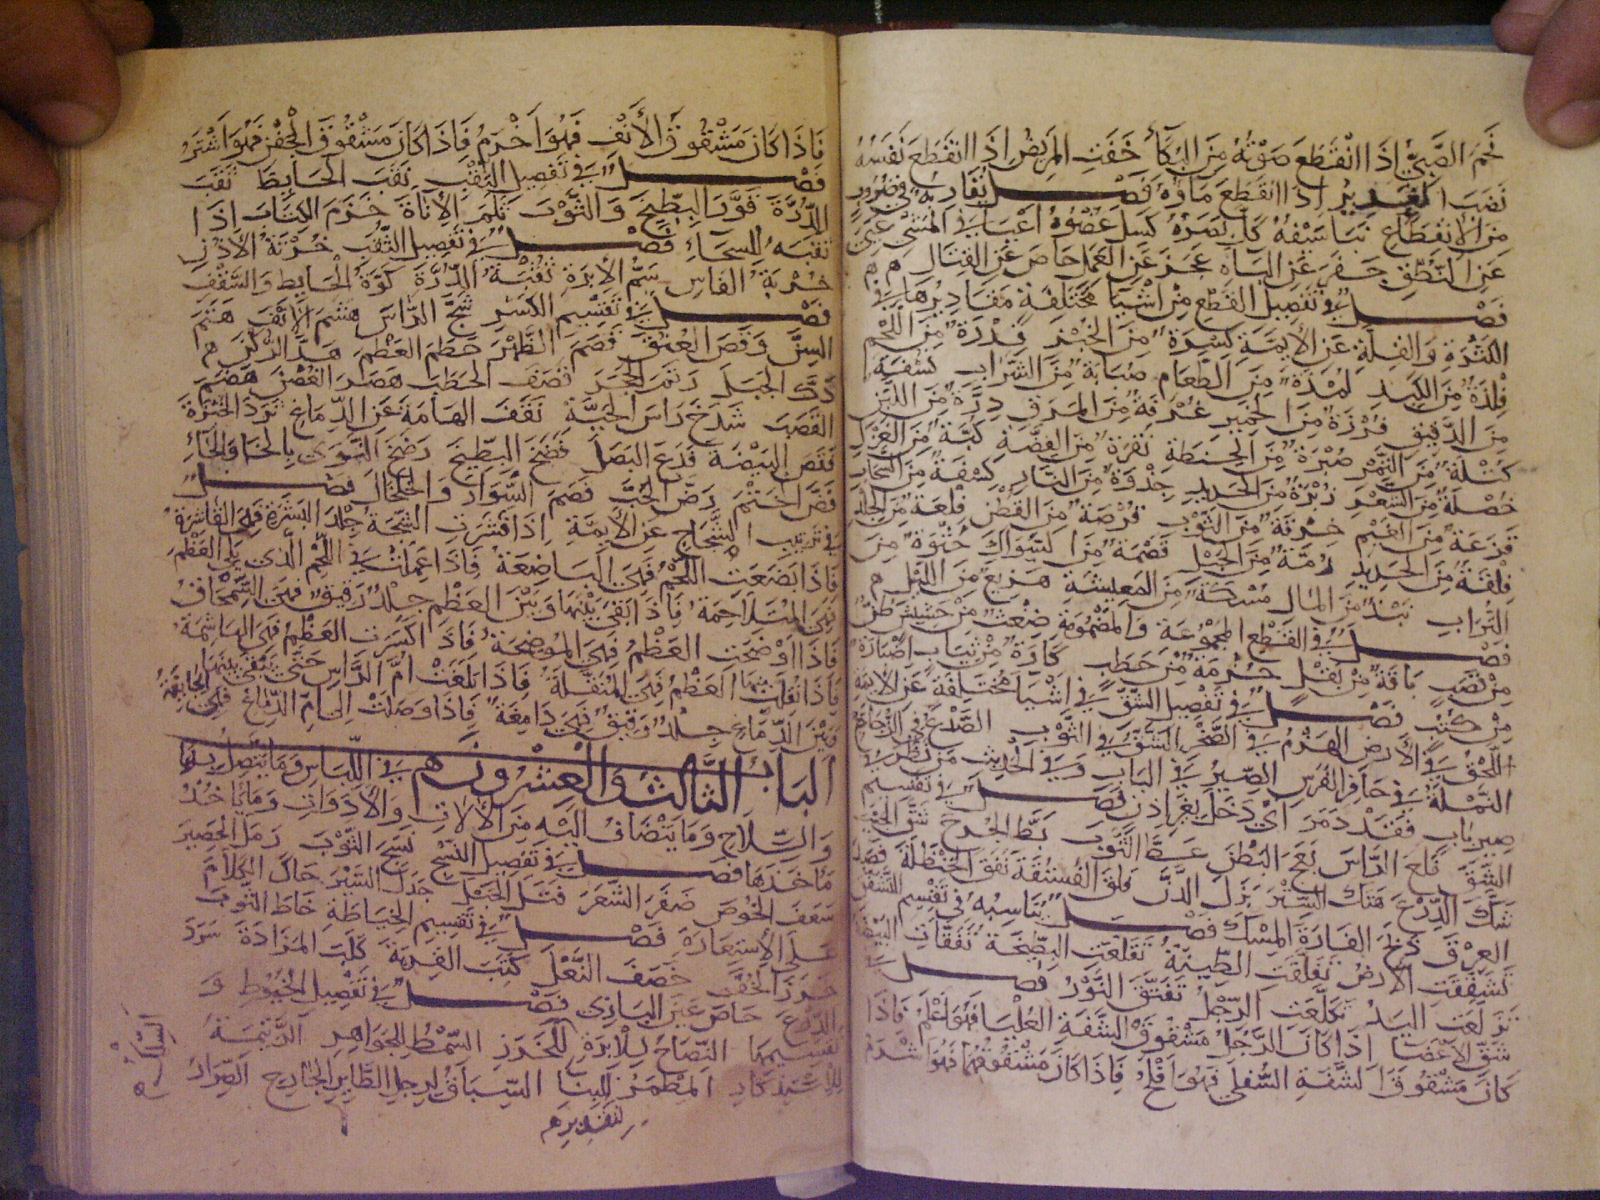 فَحَمَ الصَّبِيُّ إِذَا انْقَطَعَ صَوْتُهُ مِنَ البُكَاءِ خَفَتَ المَرِيضُ إِذَا انْقَطَعَ نَفَسُهُ
نَضَبَ الغَدِيرُ إِذَا انْقَطَعَ مَاؤُهُ فَصْل يُقَارِبُهُ فِي ضُرُوبٍ
مِنَ الاِنْقِطَاعِ نَبَا سَيْفُهُ كَلَّ بَصَرُهُ كَسِلَ عُضْوُهُ أَعْيَا فِي المَشْيِ عَيِيَ
عَنِ النُّطْقِ جَفَرَ عَنِ البَاهِ عَجَزَ عَنِ العَمَلِ حَاصَ عَنِ القِتَالِ
فَصْل فِي تَفْصِيلِ القِطَعِ مِنْ أَشْيَا مُخْتَلِفَةٍ مَقَادِيرُهَا فِي
الكَثْرَةِ وَالقِلَّةِ عَنِ الأَيِمَّةِ كِسْرَةٌ مِنَ الخُبْزِ فِدْرَةٌ مِنَ اللَّحْمِ
فِلْذَةٌ مِنَ الكَبِدِ لُمْظَةٌ مِنَ الطَّعَامِ صُبَابَةٌ مِنَ الشَّرَابِ
مِنَ الدَّقِيقِ فَرَزْدَقَةٌ مِنَ الخَمِيرِ غُرْفَةٌ مِنَ المَرَقِ دِرَّةٌ مِنَ اللَّبَنِ
كُتْلَةٌ مِنَ التَّمْرِ صُبْرَةٌ مِنَ الحِنْطَةِ نُقْرَةٌ مِنَ الفِضَّةِ كُبَّةٌ مِنَ الغَزْلِ
خُصْلَةٌ مِنَ الشَّعْرِ زُبْرَةٌ مِنَ الحَدِيدِ جِذْوَةٌ مِنَ النَّارِ كِسْفَةٌ مِنَ السَّحَابِ
قَزَعَةٌ مِنَ الغَيْمِ خِرْقَةٌ مِنَ الثَّوْبِ فُرْصَةٌ مِنَ القُطْنِ
مِنَ الحَدِيدِ رُمَّةٌ مِنَ الحَبْلِ قِصْمَةٌ مِنَ السِّوَاكِ حُثْوَةٌ مِنَ
التُّرَابِ نَبْذٌ مِنَ المَالِ مُسْكَةٌ مِنَ المَعِيشَةِ هَزِيعٌ مِنَ اللَّيْلِ م
فَصْل فِي القِطَعِ المَجْمُوعَةِ وَالمَضْمُومَةِ ضِغْثٌ مِنْ حَشِيشٍ طُنٌّ
مِنْ قَصَبٍ بَاقَةٌ مِنْ بَقْلٍ حُزْمَةٌ مِنْ حَطَبٍ كَارَةٌ مِنْ ثِيَابٍ إِضْبَارَةٌ
مِنْ كُتُبٍ فَصْل فِي تَفْصِيلِ الشَّقِّ فِي أَشْيَا مُخْتَلِفَةٍ عَنِ الأَيِمَّةِ
اللَّخْقُ فِي الأَرْضِ الهَزْمُ فِي الصَّخْرِ الشَّقُّ فِي الثَّوْبِ الصَّدْعُ فِي الزُّجَاجِ
النَّمْلَةُ فِي حَافِرِ الفَرَسِ الصِّيرُ فِي البَابِ وَفِي الحَدِيثِ مَنْ نَظَرَ فِي
صِيرِ بَابٍ فَقَدْ دَمَرَ أَيْ دَخَلَ بِغَيْرِ إِذْنٍ فَصْل فِي تَقْسِيمِ
الشَّقِّ فَلَعَ الرَّأْسَ بَعَجَ البَطْنَ عَطَّ الثَّوْبَ بَطَّ الجُرْحَ شَقَّ الجَيْبَ
شَكَّ الدِّرْعَ هَتَكَ السِّتْرَ بَزَلَ الدَّنَّ فَلَقَ الفُسْتُقَةَ نَقَفَ الحَنْظَلَةَ فَصَدَ
العِرْقَ ذَبَحَ الفَارَةَ المِسْكَ فَصْل يُنَاسِبُهُ فِي تَقْسِيمِ الشَّقِّ
تَشَقَّقَتِ الأَرْضُ تَفَلَّقَتِ الطِّينَةُ تَفَلَّعَتِ البِطِّيخَةُ تَفَقَّأَتِ البَيْضَةُ
تَزَلَّعَتِ اليَدُ تَكَلَّعَتِ الرِّجْلُ تَفَتَّقَ النَّوْرُ فَصْل فِي
شَقِّ الأَعْضَا إِذَا كَانَ الرَّجُلُ مَشْقُوقَ الشَّفَةِ العُلْيَا فَهُوَ أَعْلَمُ فَإِذَا
كَانَ مَشْقُوقَ الشَّفَةِ السُّفْلَى فَهُوَ أَفْلَحُ فَإِذَا كَانَ مَشْقُوقَهُمَا فَهُوَ أَشْرَمُ
فَإِذَا كَانَ مَشْقُوقَ الأَنْفِ فَهُوَ أَخْرَمُ فَإِذَا كَانَ مَشْقُوقَ الجَفْنِ فَهُوَ أَشْتَرُ
فَصْل فِي تَفْصِيلِ الثَّقْبِ نَقَبَ الحَايِطَ ثَقَبَ
الدُّرَّةَ قَوَّرَ البِطِّيخَ وَالثَّوْبَ ثَلَمَ الأنَاءَ خَزَمَ الكِتَابَ إِذَا
ثَقَبَهُ لِلسِّحَاءِ فَصْل فِي تَفْصِيلِ الثُّقَبِ خُرْتَةُ الأُذُنِ
خُرْبَةُ الفَاسِ سَمُّ الأِبْرَةِ ثُقْبَةُ الدُّرَّةِ كُوَّةُ الحَايِطِ وَالسَّقْفِ
فَصْل فِي تَقْسِيمِ الكَسْرِ شَجَّ الرَّأْسَ هَشَمَ الأَنْفَ هَتَمَ
السِّنَّ وَقَصَ العُنُقَ قَصَمَ الظَّهْرَ حَطَمَ العَظْمَ هَدَّ الرُّكْنَ م
دَكَّ الجَبَلَ رَتَمَ الحَجَرَ قَصَفَ الحَطَبَ هَصَرَ الغُصْنَ هَضَمَ
القَصَبَ شَدَخَ رَأْسَ الحَيَّةِ نَقَفَ الهَامَةَ عَنِ الدِّمَاغِ ثَرَدَ الخُبْزَةَ
فَقَصَ البَيْضَةَ فَدَغَ البَصَلَ فَضَخَ البِطِّيخَ رَضَحَ النَّوَى بِالحَا وَالخَاءِ
فَضَّ الخَتْمَ رَضَّ الحَبَّ فَصَمَ السِّوَارَ وَالخَلْخَالَ فَصْل
فِي تَرْتِيبِ الشِّجَاجِ عَنِ الأَيِمَّةِ إِذَا قَشَرَتِ الشَّجَّةُ جِلْدَ البَشَرَةِ فَهِيَ القَاشِرَةُ
فَإِذَا بَضَعَتِ اللَّحْمَ فَهِيَ البَاضِعَةُ فَإِذَا عَمِلَتْ فِي اللَّحْمِ الَّذِي يَلِي العَظْمَ
فَهِيَ المُتَلَاحِمَةُ فَإِذَا بَقِيَ بَيْنَهَا وَبَيْنَ العَظْمِ جِلْدٌ رَقِيقٌ فَهِيَ السِّمْحَاقُ
فَإِذَا أَوْضَحَتِ العَظْمَ فَهِيَ المُوضِحَةُ فَإِذَا كَسَرَتِ العَظْمَ فَهِيَ الهَاشِمَةُ
فَإِذَا نُقِلَتْ مِنْهَا العَظْمُ فَهِيَ المُنَقِّلَةُ فَإِذَا بَلَغَتْ أُمَّ الرَّأْسِ حَتَّى يَبْقَى بَيْنَهَا
وَبَيْنَ الدِّمَاغِ جِلْدٌ رَقِيقٌ فَهِيَ دَامِغَةٌ فَإِذَا وَصَلَتْ إِلَى أُمِّ الدِّمَاغِ فَهِيَ الجَائِفَةُ
البَابُ الثَّالِثُ وَالعِشْرُونَ فِي اللِّبَاسِ وَمَا يَتَّصِلُ بِهِ
وَالسِّلَاحِ وَمَا يَنْضَافُ إِلَيْهِ مِنَ الأَلَاتِ وَالأَدَوَاتِ وَمَا يَأْخُذُ
مَأْخَذَهَا فَصْل فِي تَفْصِيلِ النَّسْجِ نَسَجَ الثَّوْبَ رَمَلَ الحَصِيرَ
سَعَفَ الخُوصَ ضَفَرَ الشَّعَرَ فَتَلَ الحَبْلَ جَدَلَ السَّيْرَ حَاكَ الكَلَامَ
عَلَى الاِسْتِعَارَةِ فَصْل فِي تَقْسِيمِ الخِيَاطَةِ خَاطَ الثَّوْبَ
خَرَزَ الخُفَّ خَصَفَ النَّعْلَ كَتَبَ القِرْبَةَ كَلَبَ المَزَادَةَ سَرَدَ
الدِّرْعَ حَاصَ عَيْنَ البَازِي فَصْل فِي تَفْصِيلِ الخُيُوطِ وَ
تَقْسِيمِهَا النِّصَاحُ لِلْإِبْرَةِ السِّمْطُ لِلْجَوَاهِرِ الرَّتِيمَةُ
لِلاِسْتِذْكَارِ المِطْمَرُ لِلْبِنَا السِّبَاقُ لِرِجْلِ الطَّايِرِ الجَارِحِ الصِّرَارُ